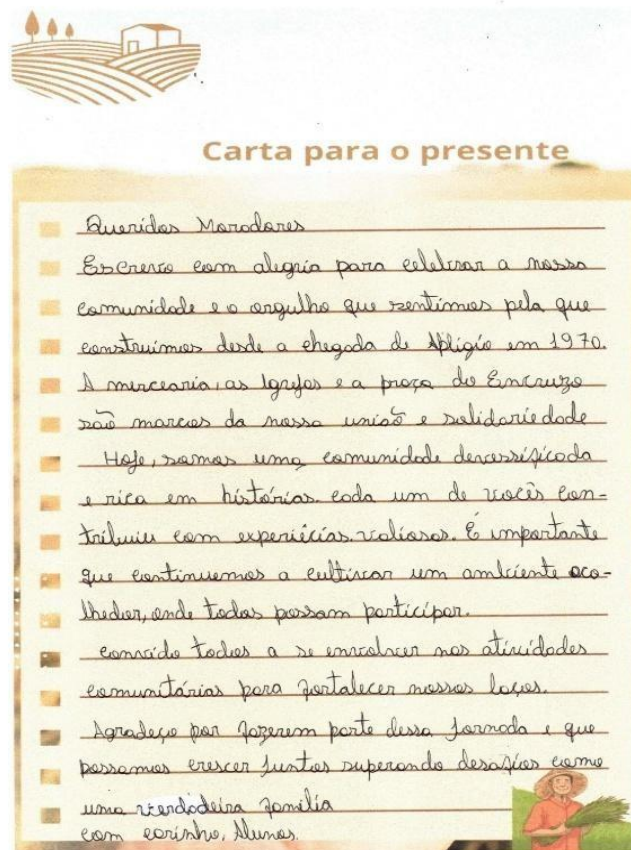 Carta para o presente
Queridos Moradores
Escrevo com alegria para celebrar a nossa
comunidade e o orgulho que sentimos pela que
construimos desde a chegada de Apligio em 1970.
A mercearia, as Igrejas e a praça do Encruzo
são marcas da nossa união e solidariedade
Hoje, somos uma comunidade deverssificada
e rica em histórias. cada um de vocês con-
tribuiu com experiécias valiosas. É importante
que continuemos a cultivar um ambiente aco-
lhedor, onde todos possam participar.
convido todos a se envolver nas atividades
comunitárias para fortalecer nossos laços.
Agradeço por fazerem parte dessa Jornada e que
possamos crescer Juntos superando desafios como
uma verdadeira família
com carinho, Alunas.